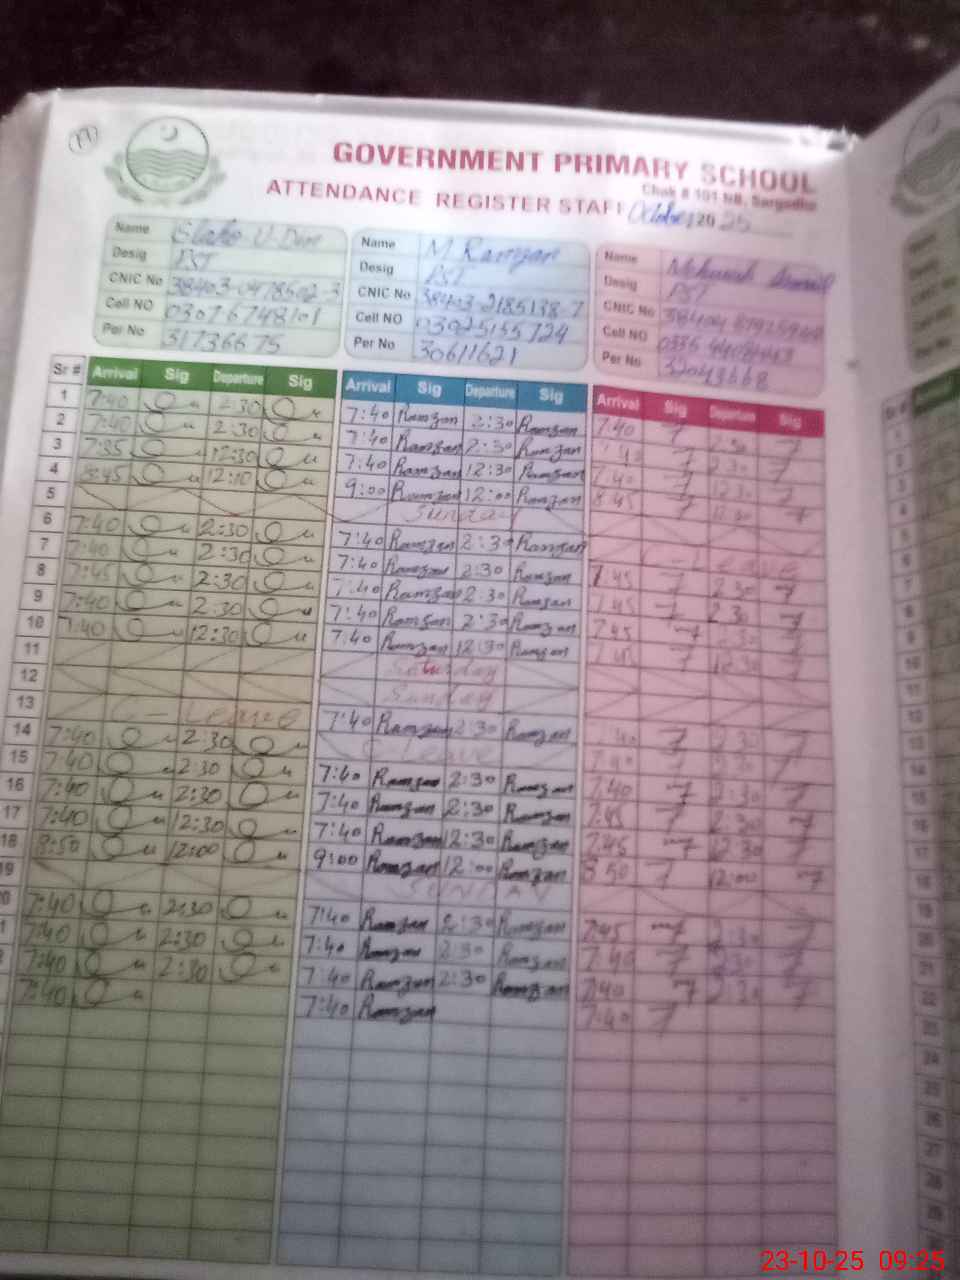 (17)
GOVERNMENT PRIMARY SCHOOL
Chak # 101 NB, Sargodha
ATTENDANCE REGISTER STAFF October 2025
Name U Din Name M Ramzan Name
Desig PST Desig PST Desig PST
CNIC No 38403-0478502-3 CNIC No 38403-2185138-7 CNIC No
Cell NO 03076748101 Cell NO 03025155724 Cell NO
Per No 31736675 Per No 30611621 Per No 32043668
Sr # Arrival Sig Departure Sig Arrival Sig Departure Sig Arrival Sig Departure Sig
1 7:40 2:30 7:40 Ramzan 2:30 Ramzan 7:40 2:30
2 7:40 2:30 7:40 Ramzan 2:30 Ramzan 7:40 2:30
3 7:35 12:30 7:40 Ramzan 12:30 Ramzan 7:40 12:30
4 8:45 12:10 9:00 Ramzan 12:00 Ramzan 8:45
5 Sunday
6 7:40 2:30 7:40 Ramzan 2:30 Ramzan C-Leave
7 7:40 2:30 7:40 Ramzan 2:30 Ramzan 7:45 2:30
8 7:45 2:30 7:40 Ramzan 2:30 Ramzan 7:45 2:30
9 7:40 2:30 7:40 Ramzan 2:30 Ramzan 7:45 2:30
10 7:40 12:30 7:40 Ramzan 12:30 Ramzan 7:45 12:30
11 Saturday
12 Sunday
13 C-Leave 7:40 Ramzan 2:30 Ramzan 7:40 2:30
14 7:40 2:30 C-Leave 7:40 2:30
15 7:40 2:30 7:40 Ramzan 2:30 Ramzan 7:40 2:30
16 7:40 2:30 7:40 Ramzan 2:30 Ramzan 7:45 2:30
17 7:40 12:30 7:40 Ramzan 12:30 Ramzan 7:45 12:30
18 8:50 12:00 9:00 Ramzan 12:00 Ramzan 8:50 12:00
19 SUNDAY
20 7:40 2:30 7:40 Ramzan 2:30 Ramzan 7:45 2:30
7:40 2:30 7:40 Ramzan 2:30 Ramzan 7:40 2:30
7:40 2:30 7:40 Ramzan 2:30 Ramzan 7:40 2:30
7:40 7:40 Ramzan 7:40
23-10-25 09:25